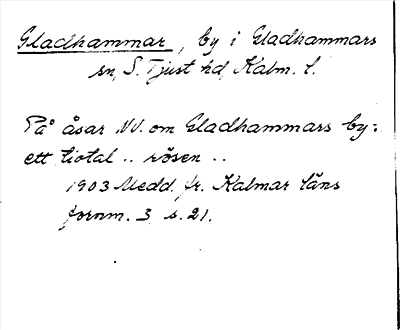 Gladhammar, by i Gladhammars
sn, S. Tjust hd, Kalm. l.
På åsar NV. om Gladhammars by:
ett tiotal .. rösen ..
1903 Medd. fr. Kalmar läns
fornm. 3 s. 21.